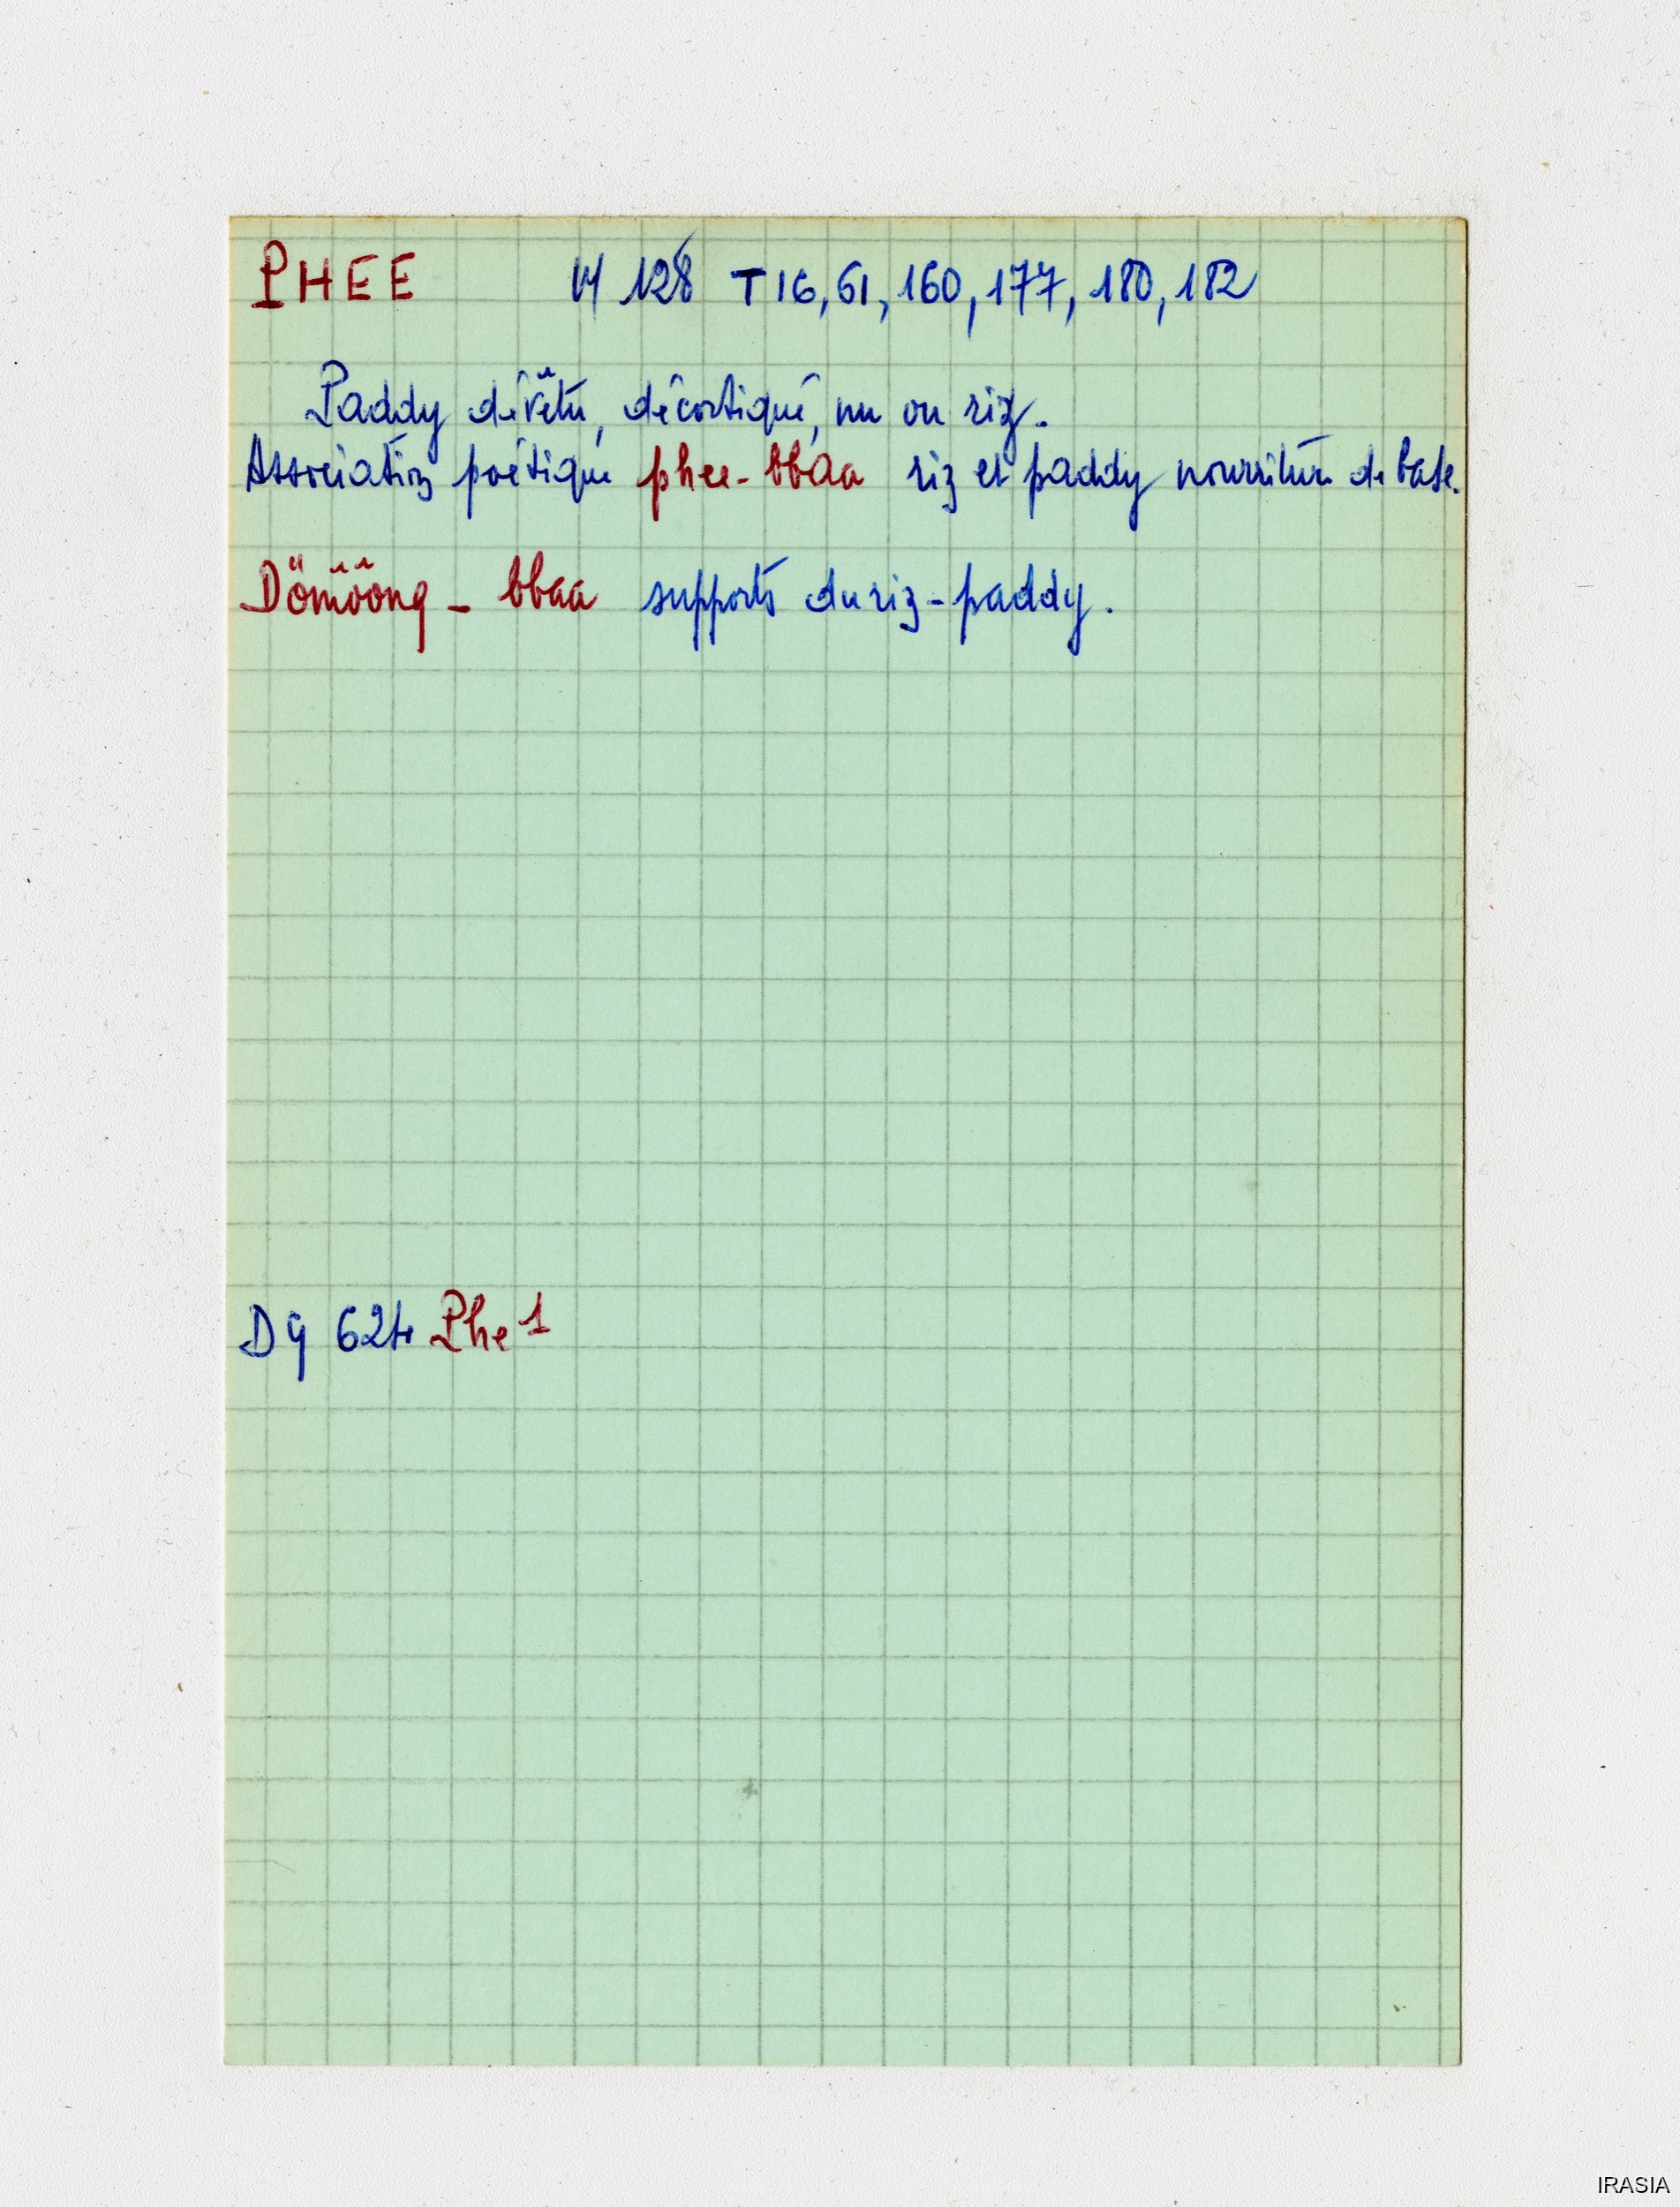 PHEE M 128 T 16, 61, 160, 177, 180, 182
Paddy dévêtu, décortiqué, nu ou riz.
Association poétique phee-bbaa riz et paddy nourriture de base.
Dömôông - bbaa supports du riz-paddy.
Dg 624 Phe 1
IRASIA